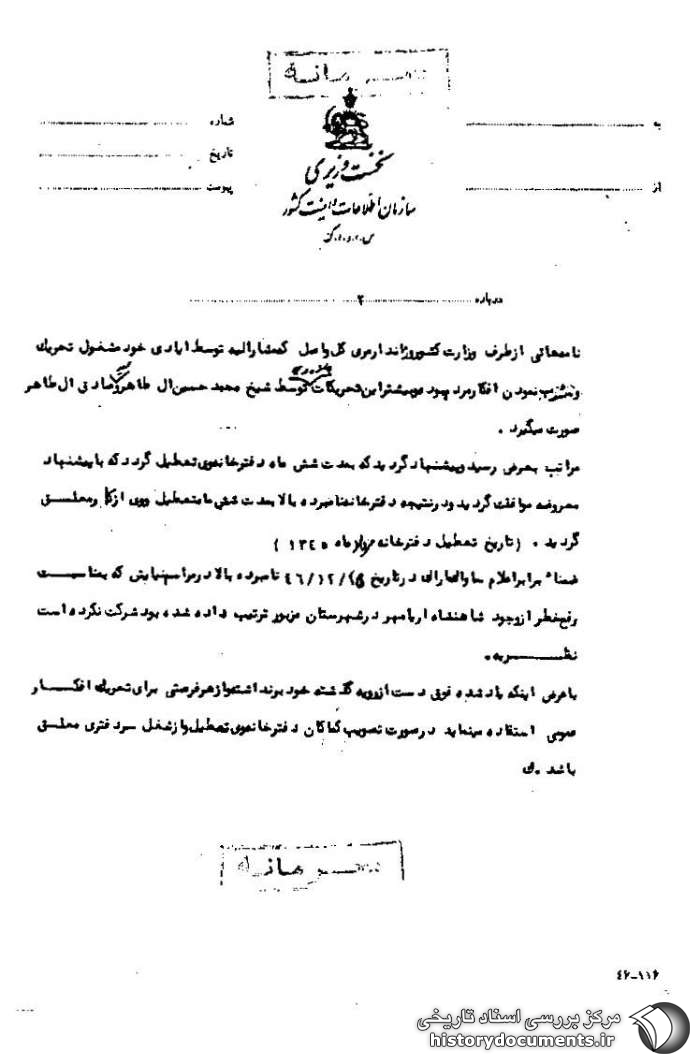 محرمانه
به
شماره
تاریخ
از
پیوست
نخست وزیری
سازمان اطلاعات و امنیت کشور
س.ا.و.ا.ک
درباره ۲
نامه‌هائی از طرف وزارت کشور و ژاندارمری کل واصل که مشارالیه توسط ایادی خود مشغول تحریک
نمودن افکار مردم بوده و بیشتر این تحریکات توسط شیخ محمد حسین آل طاهر و هادی آل طاهر
صورت میگیرد .
مراتب بعرض رسید و پیشنهاد گردید که بمدت شش ماه دفترخانه وی تعطیل گردد که با پیشنهاد
معروضه موافقت گردید و در نتیجه دفترخانه نامبرده بالا بمدت شش ماه تعطیل و وی از کار معلق
گردید . (تاریخ تعطیل دفترخانه مرداد ماه ۱۳۴۵ )
ضمناً برابر اعلام ساواک در تاریخ ۱۵/۱۲/۴۶ نامبرده بالا در مراسم نیایش که بمناسبت
رفع خطر از وجود شاهنشاه آریامهر در شهرستان مزبور ترتیب داده شده بود شرکت نکرده است
نظریه .
با عرض اینکه یاد شده فوق دست از رویه گذشته خود برنداشته و از هر فرصتی برای تحریک افکار
عمومی استفاده مینماید در صورت تصویب کماکان دفترخانه وی تعطیل و از شغل سردفتری معلق
باشد . ک
محرمانه
۴۶-۱۱۶
مرکز بررسی اسناد تاریخی
historydocuments.ir